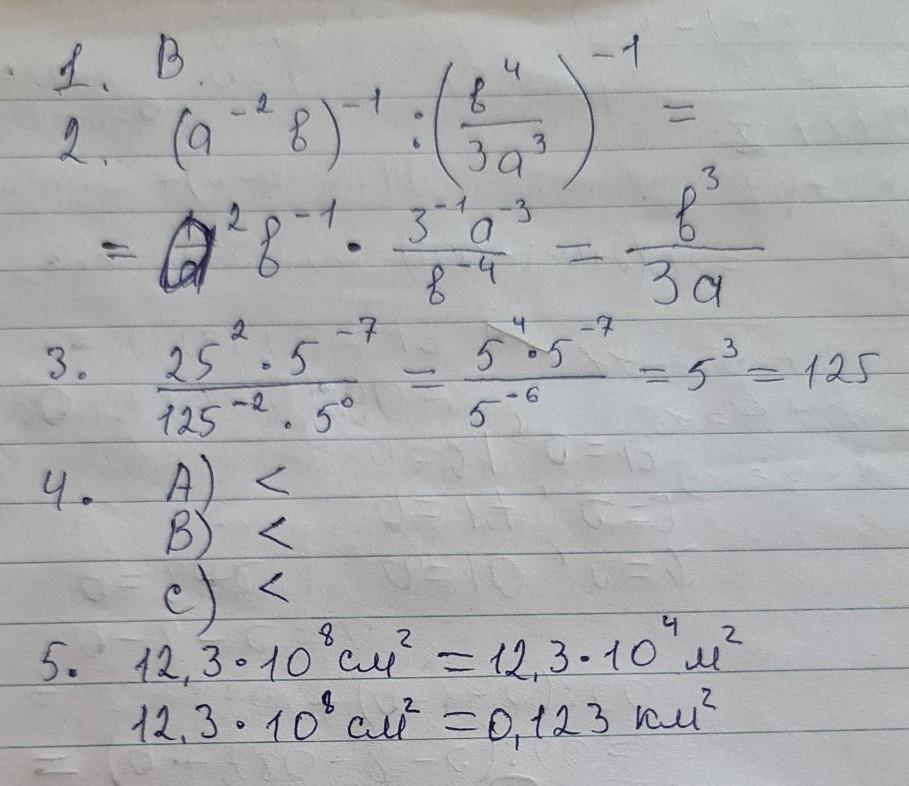 1. B.
2. (a⁻² b)⁻¹ : (b⁴/3a³)⁻¹ =
= a² b⁻¹ · 3⁻¹a⁻³/b⁻⁴ = b³/3a
3. 25² · 5⁻⁷/125⁻² · 5⁰ = 5⁴ · 5⁻⁷/5⁻⁶ = 5³ = 125
4. A) <
B) <
C) <
5. 12,3 · 10⁸ см² = 12,3 · 10⁴ м²
12,3 · 10⁸ см² = 0,123 км²